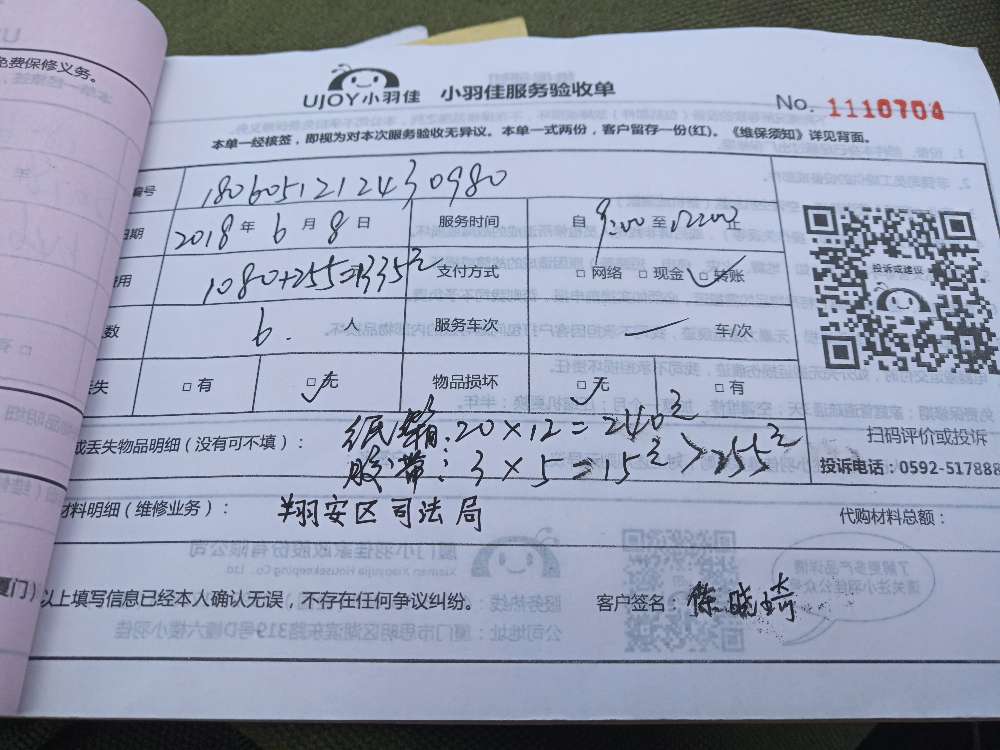 免费保修义务。
UJOY小羽佳 小羽佳服务验收单
No. 1110704
本单一经核签，即视为对本次服务验收无异议。本单一式两份，客户留存一份(红)。《维保须知》详见背面。
编号 180605121243 0980
日期 2018 年 6 月 8 日 服务时间 自 9:00 至 12:00 止
费用 1080+255=1335元 支付方式 □ 网络 □ 现金 □ 转账
数 6. 人 服务车次 一 车/次
丢失 □ 有 □ 无 物品损坏 □ 无 □ 有
投诉或建议
或丢失物品明细（没有可不填）： 纸箱：20×12=240元
胶带：3×5=15元 >255元
扫码评价或投诉
投诉电话：0592-517888
材料明细（维修业务）： 翔安区司法局 代购材料总额：
厦门）
以上填写信息已经本人确认无误，不存在任何争议纠纷。 客户签名：